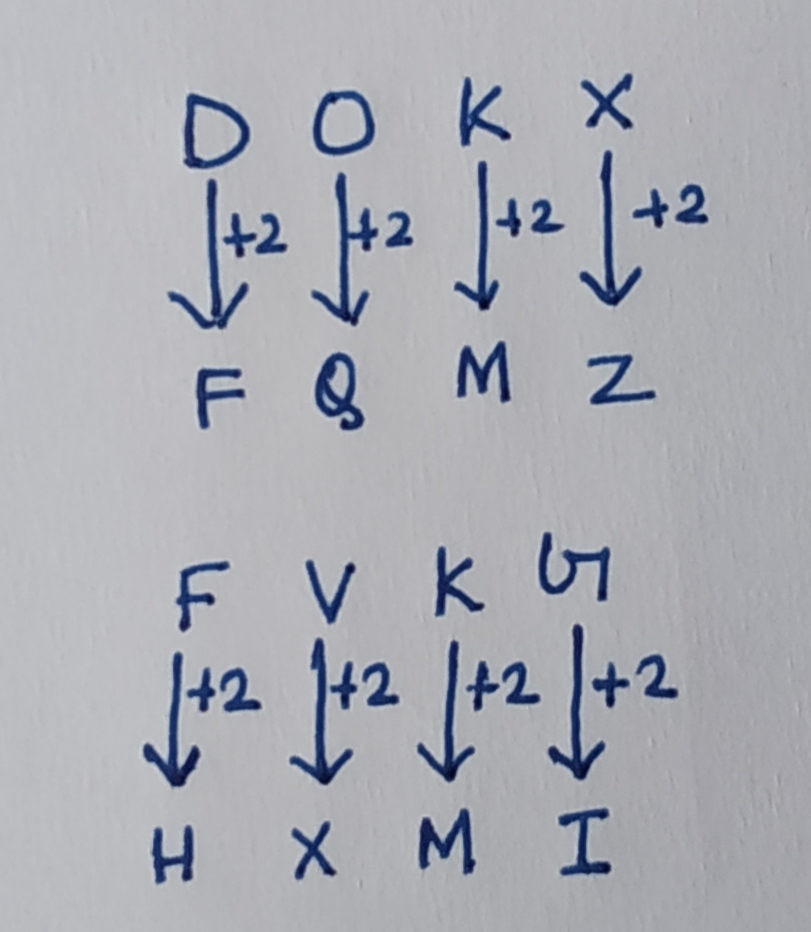 D O K X
+2 +2 +2 +2
F Q M Z
F V K G
+2 +2 +2 +2
H X M I